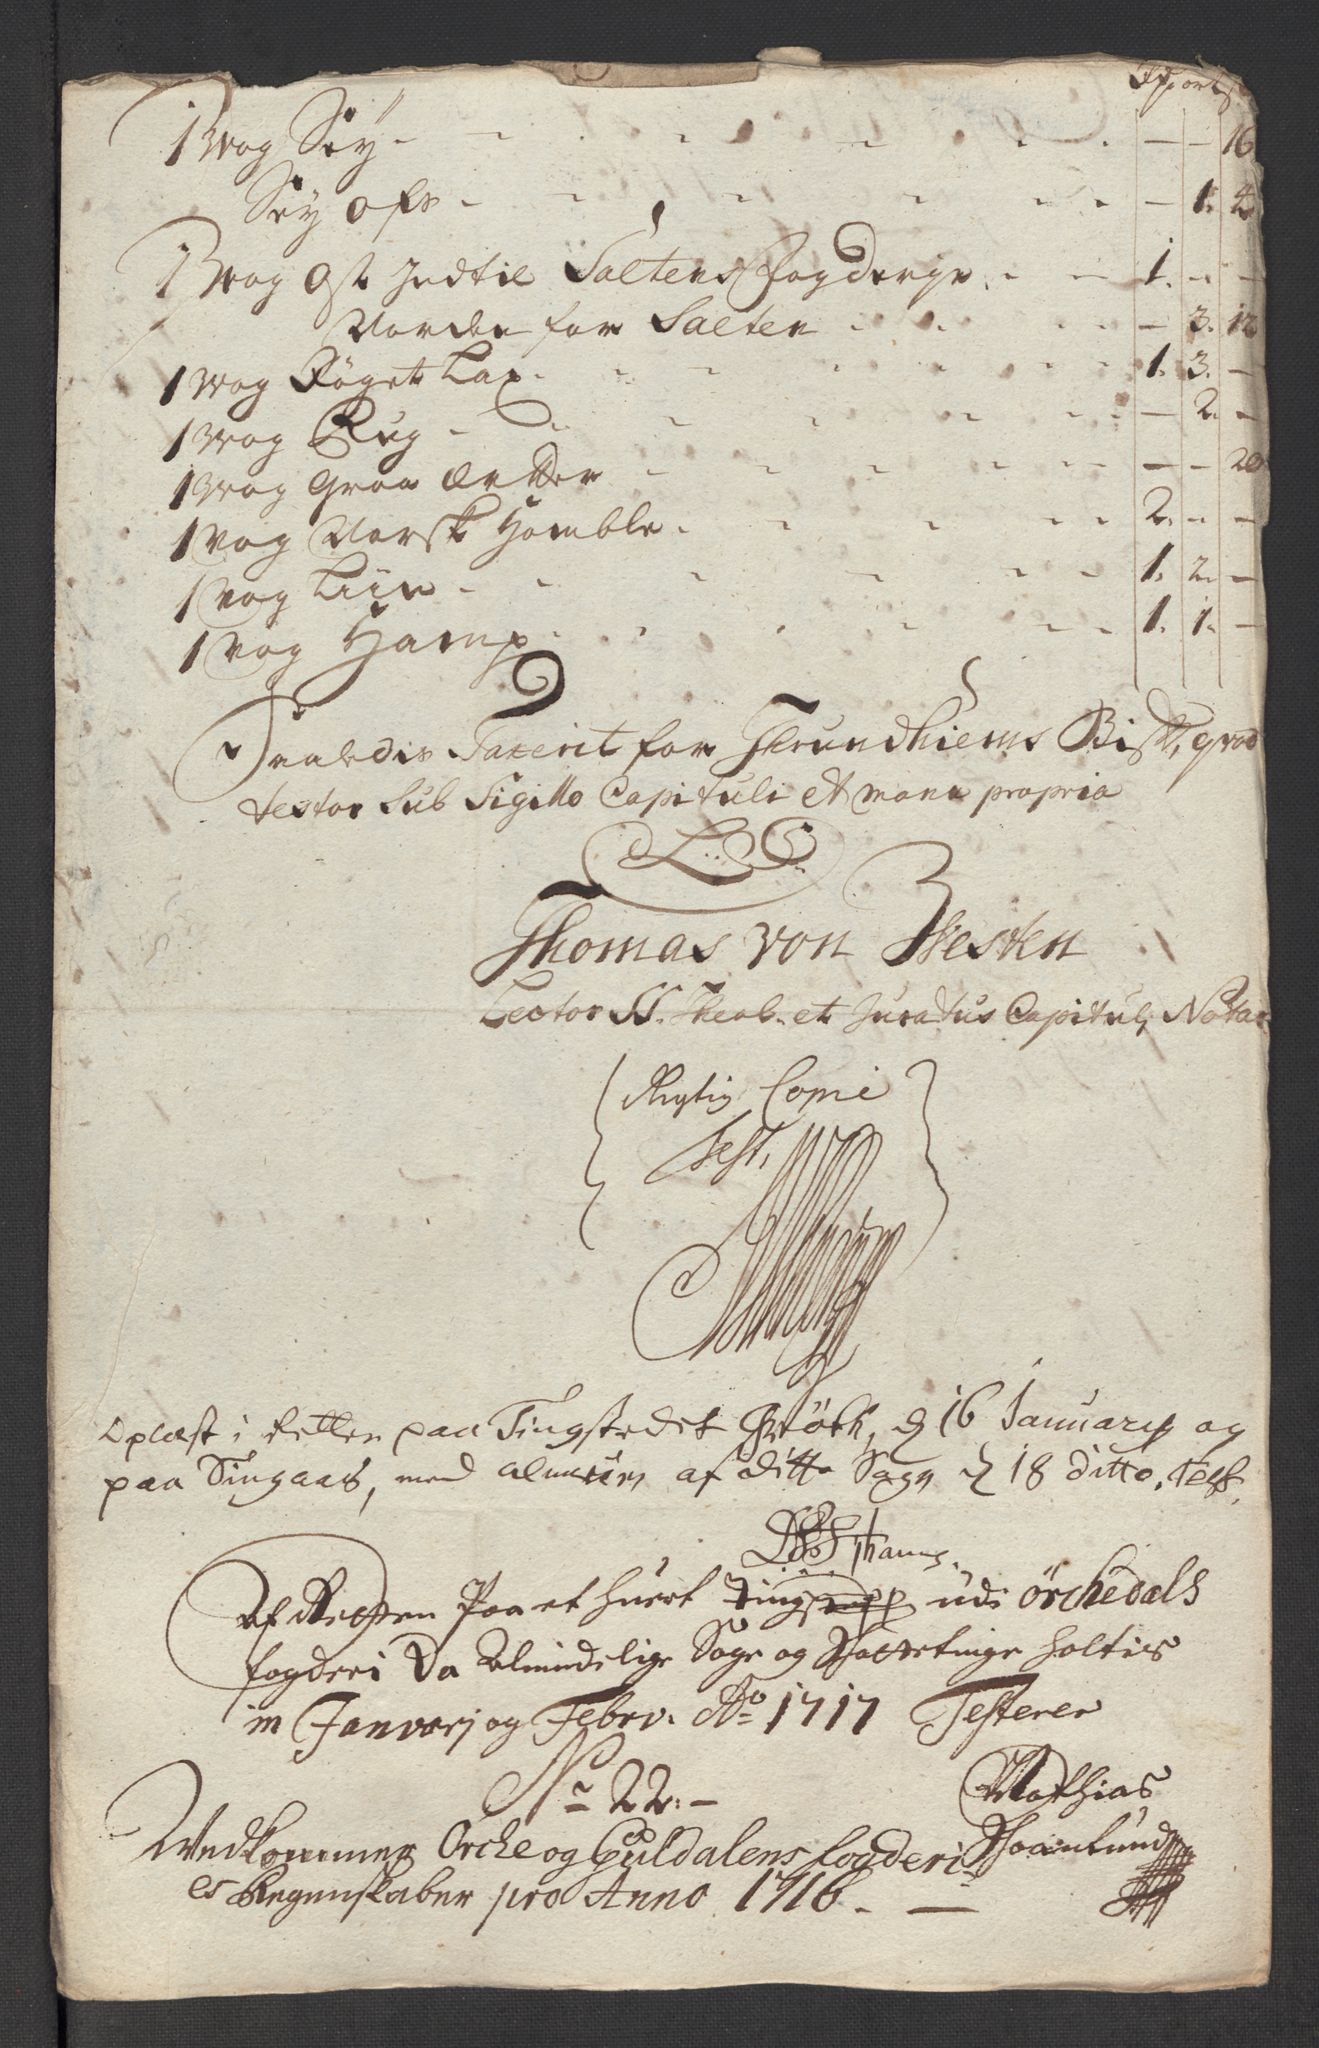 ort
1 Wog Sey - - 16
Sey - 1. 4
1 Wog Ost Indtil Saltens Fogderye. 1. - -
Norden for Salten - 3. 12
1 Wog Røget Lax. 1. 3. -
1 Wog Rug - 2. -
1 Wog Graa Ærtter - - 20
1 Vog Norsk Homble. 2. - -
1 Vog Liin - 1. 2. -
1 Vog Hamp. 1. 1. -
Saaledis Taxerit for Thrundhiems Bisp, qvod
testor Sub Sigillo Capituli et manu propria
L. S.
Thomas von Westen
Lector SS. Theol. et Juratus Capituli Notar
Rigtig Copie
Test.
Oplæst i Retten paa Tingstedet Størk, d 16 January og
paa Singaas, med almuen af ditto Sogn d 18 ditto. Test.
Af Retten Paa et huert udi Örchedals
fogderi Da Almindelige Sage og Skattetinge holtis
in Janvarj og Febrv. Ao 1717 Testerer
No 22. -
Mathias
Vedkommer Orche og Guldalens fogderi
es Regenskaber pro Anno 1716. -